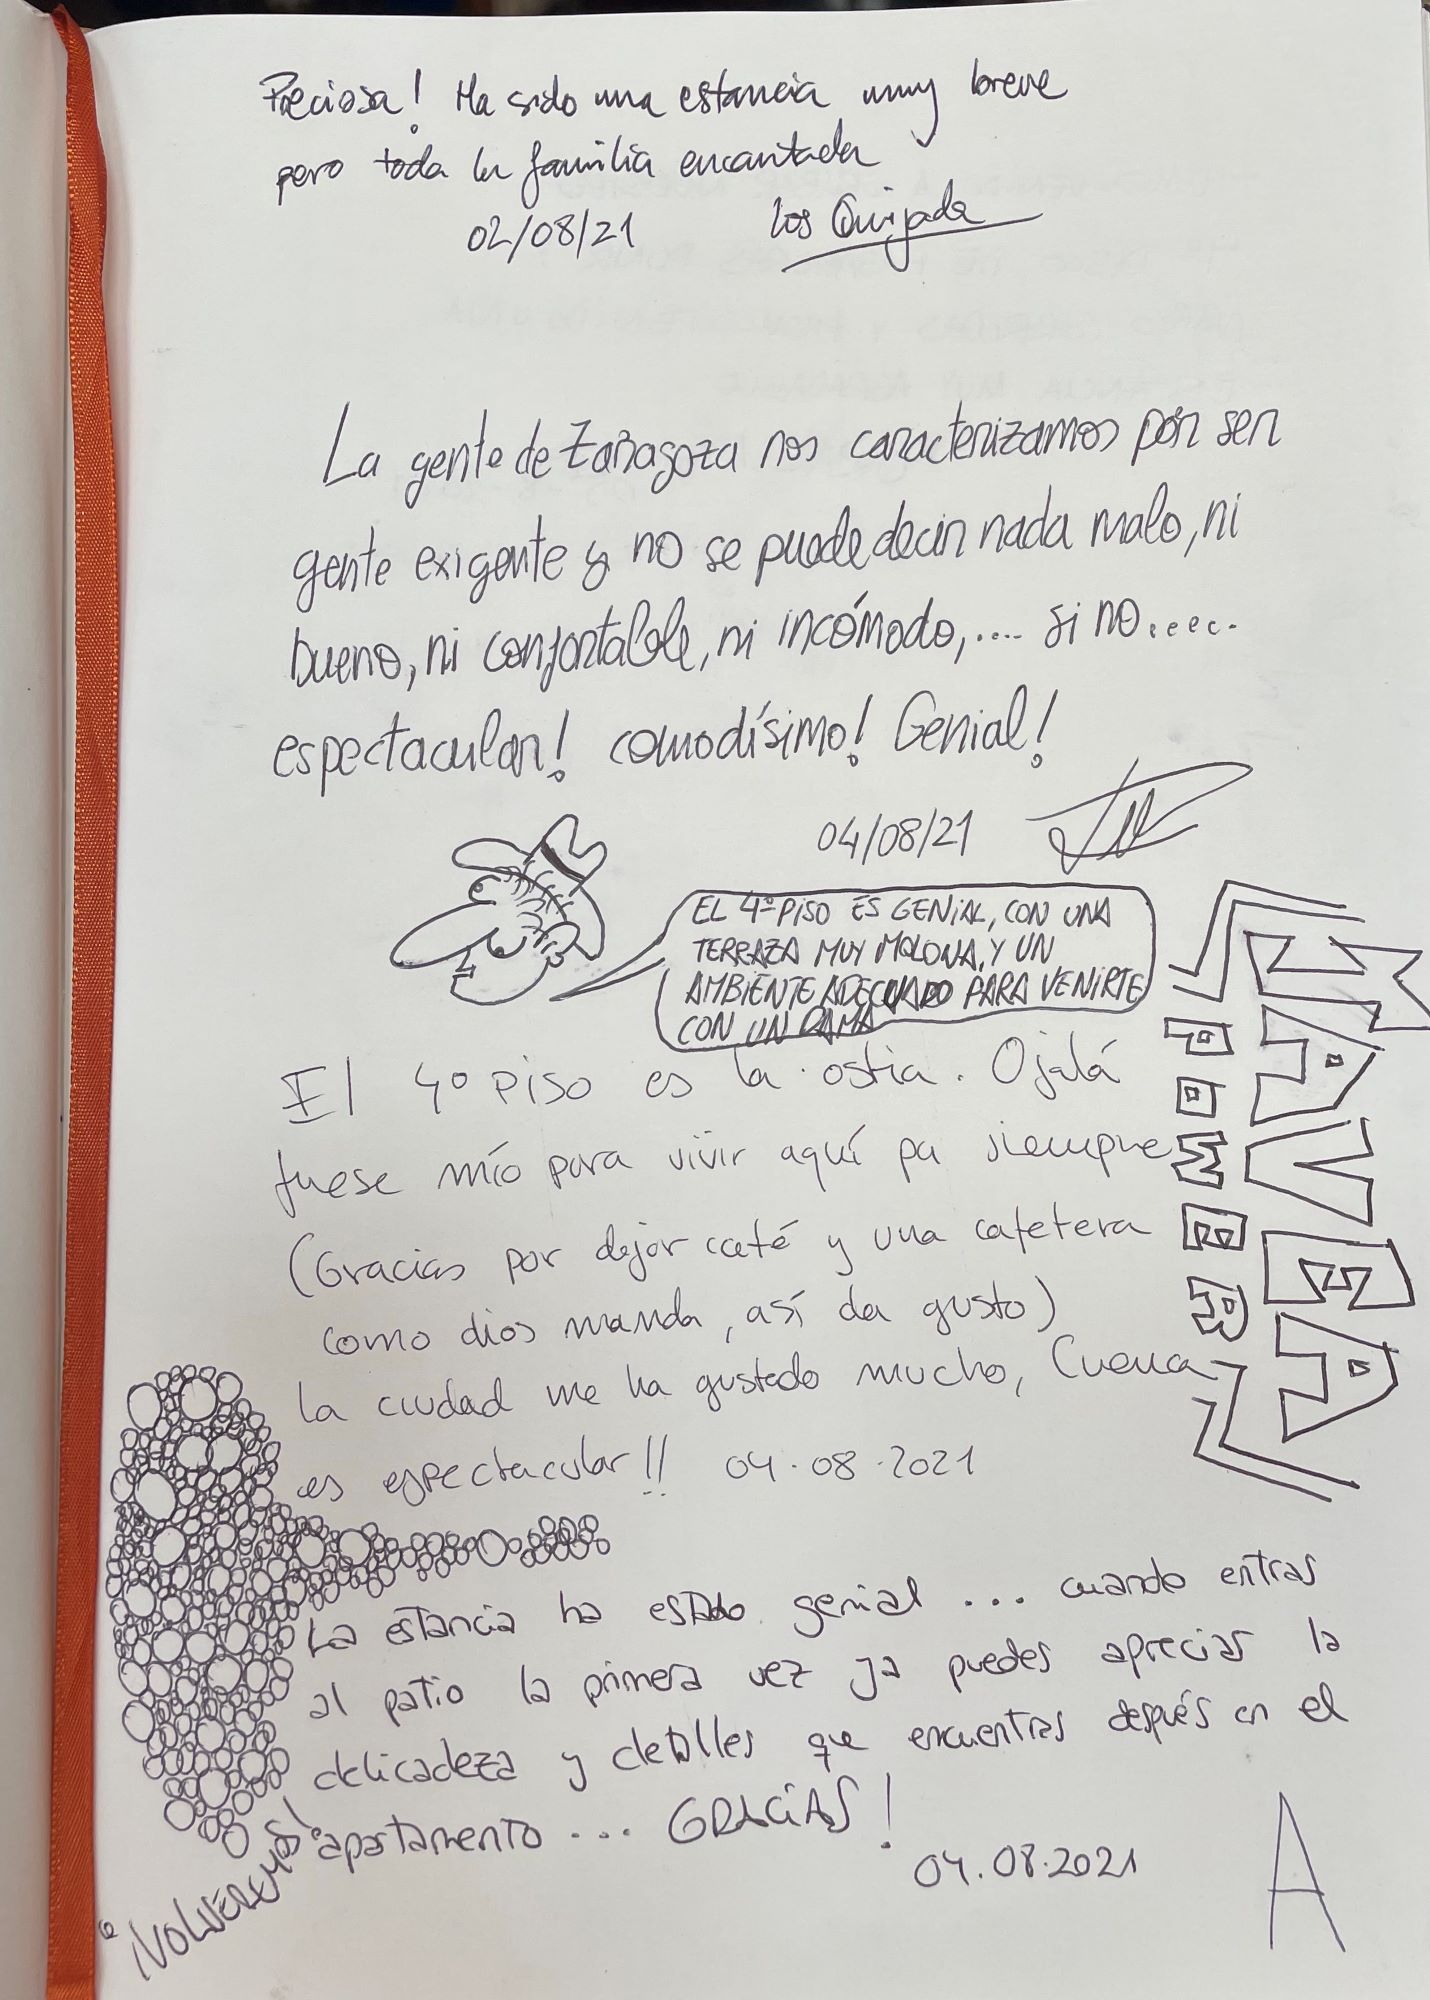 Preciosa! Ha sido una estancia muy breve
pero toda la familia encantada
02/08/21 Los Quijada
La gente de Zaragoza nos caracterizamos por ser
gente exigente y no se puede decir nada malo, ni
bueno, ni confortable, ni incómodo, .... si no .....
espectacular! comodísimo! Genial!
04/08/21
EL 4º PISO ES GENIAL, CON UNA
TERRAZA MUY MOLONA, Y UN
AMBIENTE ADECUADO PARA VENIRTE
CON UN DAMA
El 4º piso es la ostia. Ojalá
fuese mío para vivir aquí pa siempre
(Gracias por dejar café y una cafetera
como dios manda, así da gusto)
La ciudad me ha gustado mucho, Cuenca
es espectacular!! 04.08.2021
POWER
La estancia ha estado genial ... cuando entras
al patio la primera vez ya puedes apreciar la
delicadeza y detalles que encuentras después en el
apartamento ... GRACIAS!
04.08.2021 A
¡VOLVEREMOS!